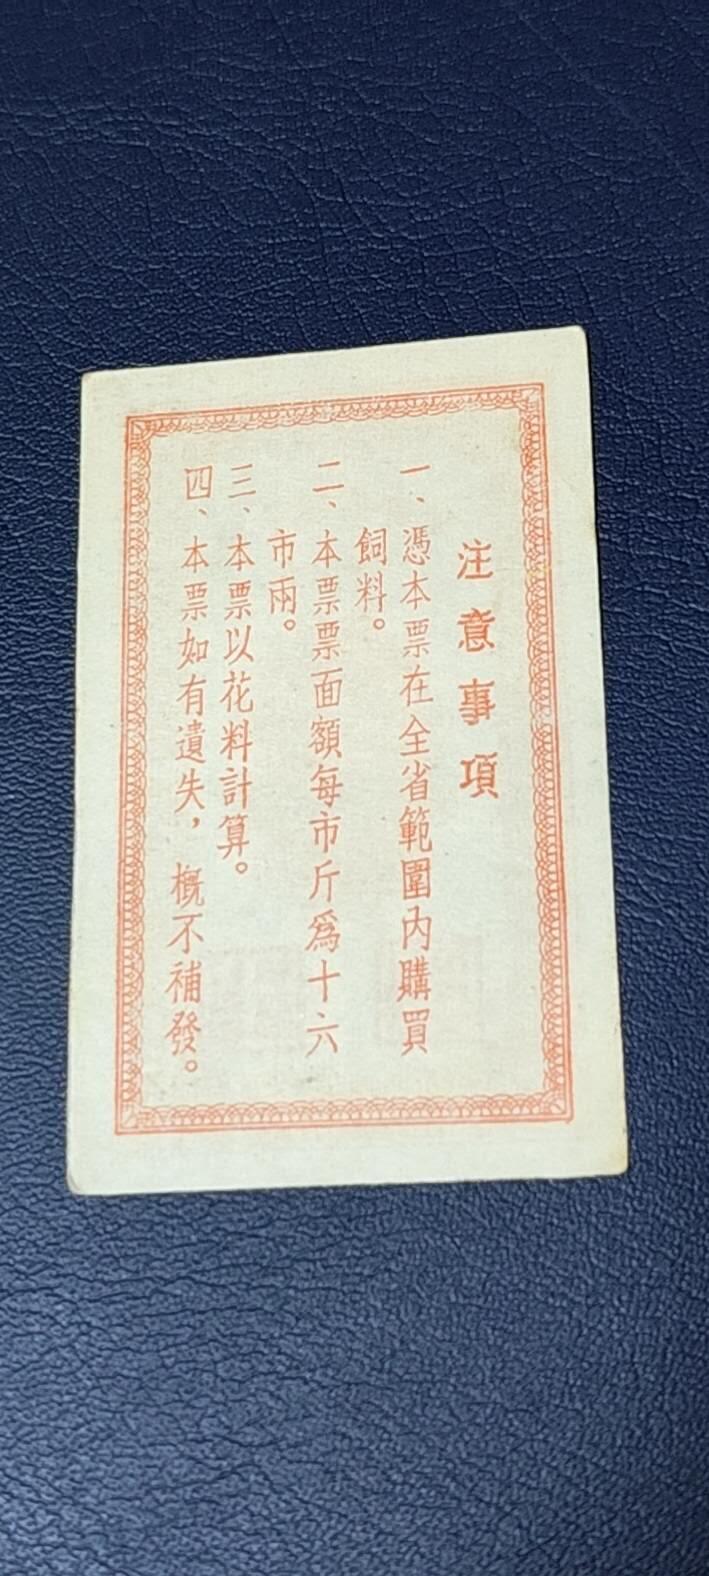 注意事項
一、憑本票在全省範圍內購買
飼料。
二、本票票面額每市斤爲十六
市兩。
三、本票以花料計算。
四、本票如有遺失，概不補發。